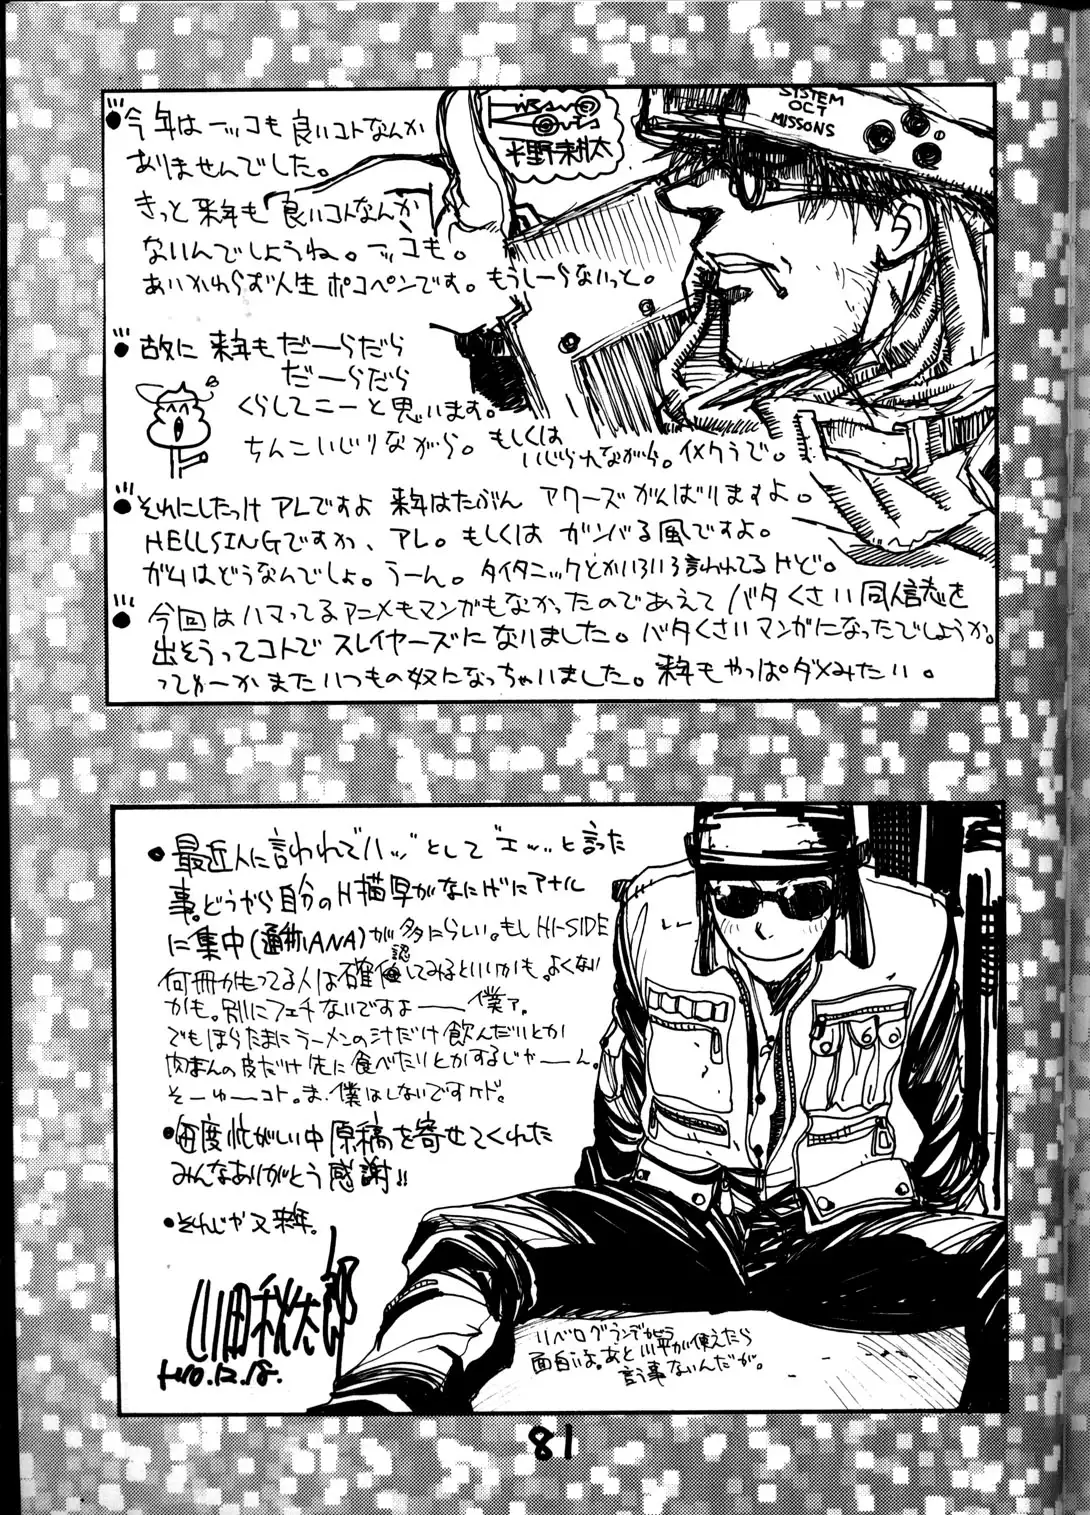 今年は一ッコも良いコトなんか
ありませんでした。
きっと来年も「良いコトなんか」
ないんでしょうね。一ッコも。
あいかわらず人生ポコペンです。もうしーらないっと。
故に来年もだーらだら
だーらだら
くらしてこーと思います。
ちんこいじりながら。もしくは
いじられながら。イメクラで。
それにしたっけアレですよ来年はたぶんアワーズがんばりますよ。
HELLSINGですか、アレ。もしくはガンバる風ですよ。
ガムはどうなんでしょ。うーん。タイタニックとかいろいろ言われてるけど。
今回はハマってるアニメもマンガもなかったのであえてバタくさい同人誌を
出そうってコトでスレイヤーズになりました。バタくさいマンガになったでしょうか。
ってゆーかまたいつもの奴になっちゃいました。来年もやっぱダメみたい。
平野耕太
SYSTEM
OCT
MISSONS
最近人に言われて"ハッ"として"エッ"と言った
事。どうやら自分のH描写がなにげにアナル
に集中(通称ANA)が多いらしい。もしHI-SIDE
何冊かもってる人は確認してみるといいかも。よくない
かも。別にフェチないですよー僕ァ。
でもほらたまにラーメンの汁だけ飲んだりとか
肉まんの皮だけ先に食べたりとかするじゃーん。
そーゆーコト。ま、僕はしないですケド。
毎度忙がしい中原稿を寄せてくれた
みんなありがとう感謝!!
そんじゃ又来年。
山田秋太郎
H10.12.18.
リベログランデが
面白いよ。あと川平が使えたら
言う事ないんだが。
81